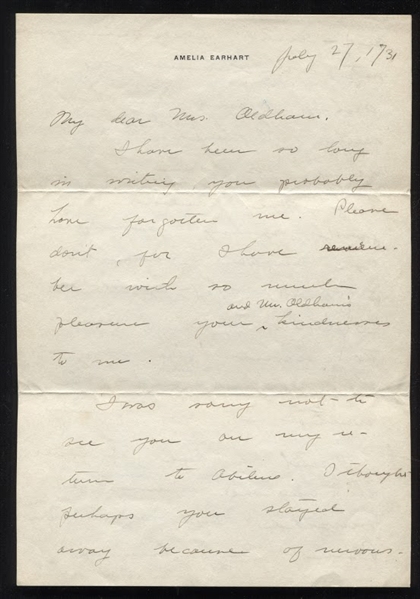 AMELIA EARHART
July 27, 1931
My dear Mrs. Oldham.
I have been so long
in writing you probably
have forgotten me. Please
don't, for I have
ber with so much
and Mr. Oldham's
pleasure your kindnesses
to me.
I was sorry not to
see you on my re-
turn to Abilene. I thought
perhaps you stayed
away because of nervous-